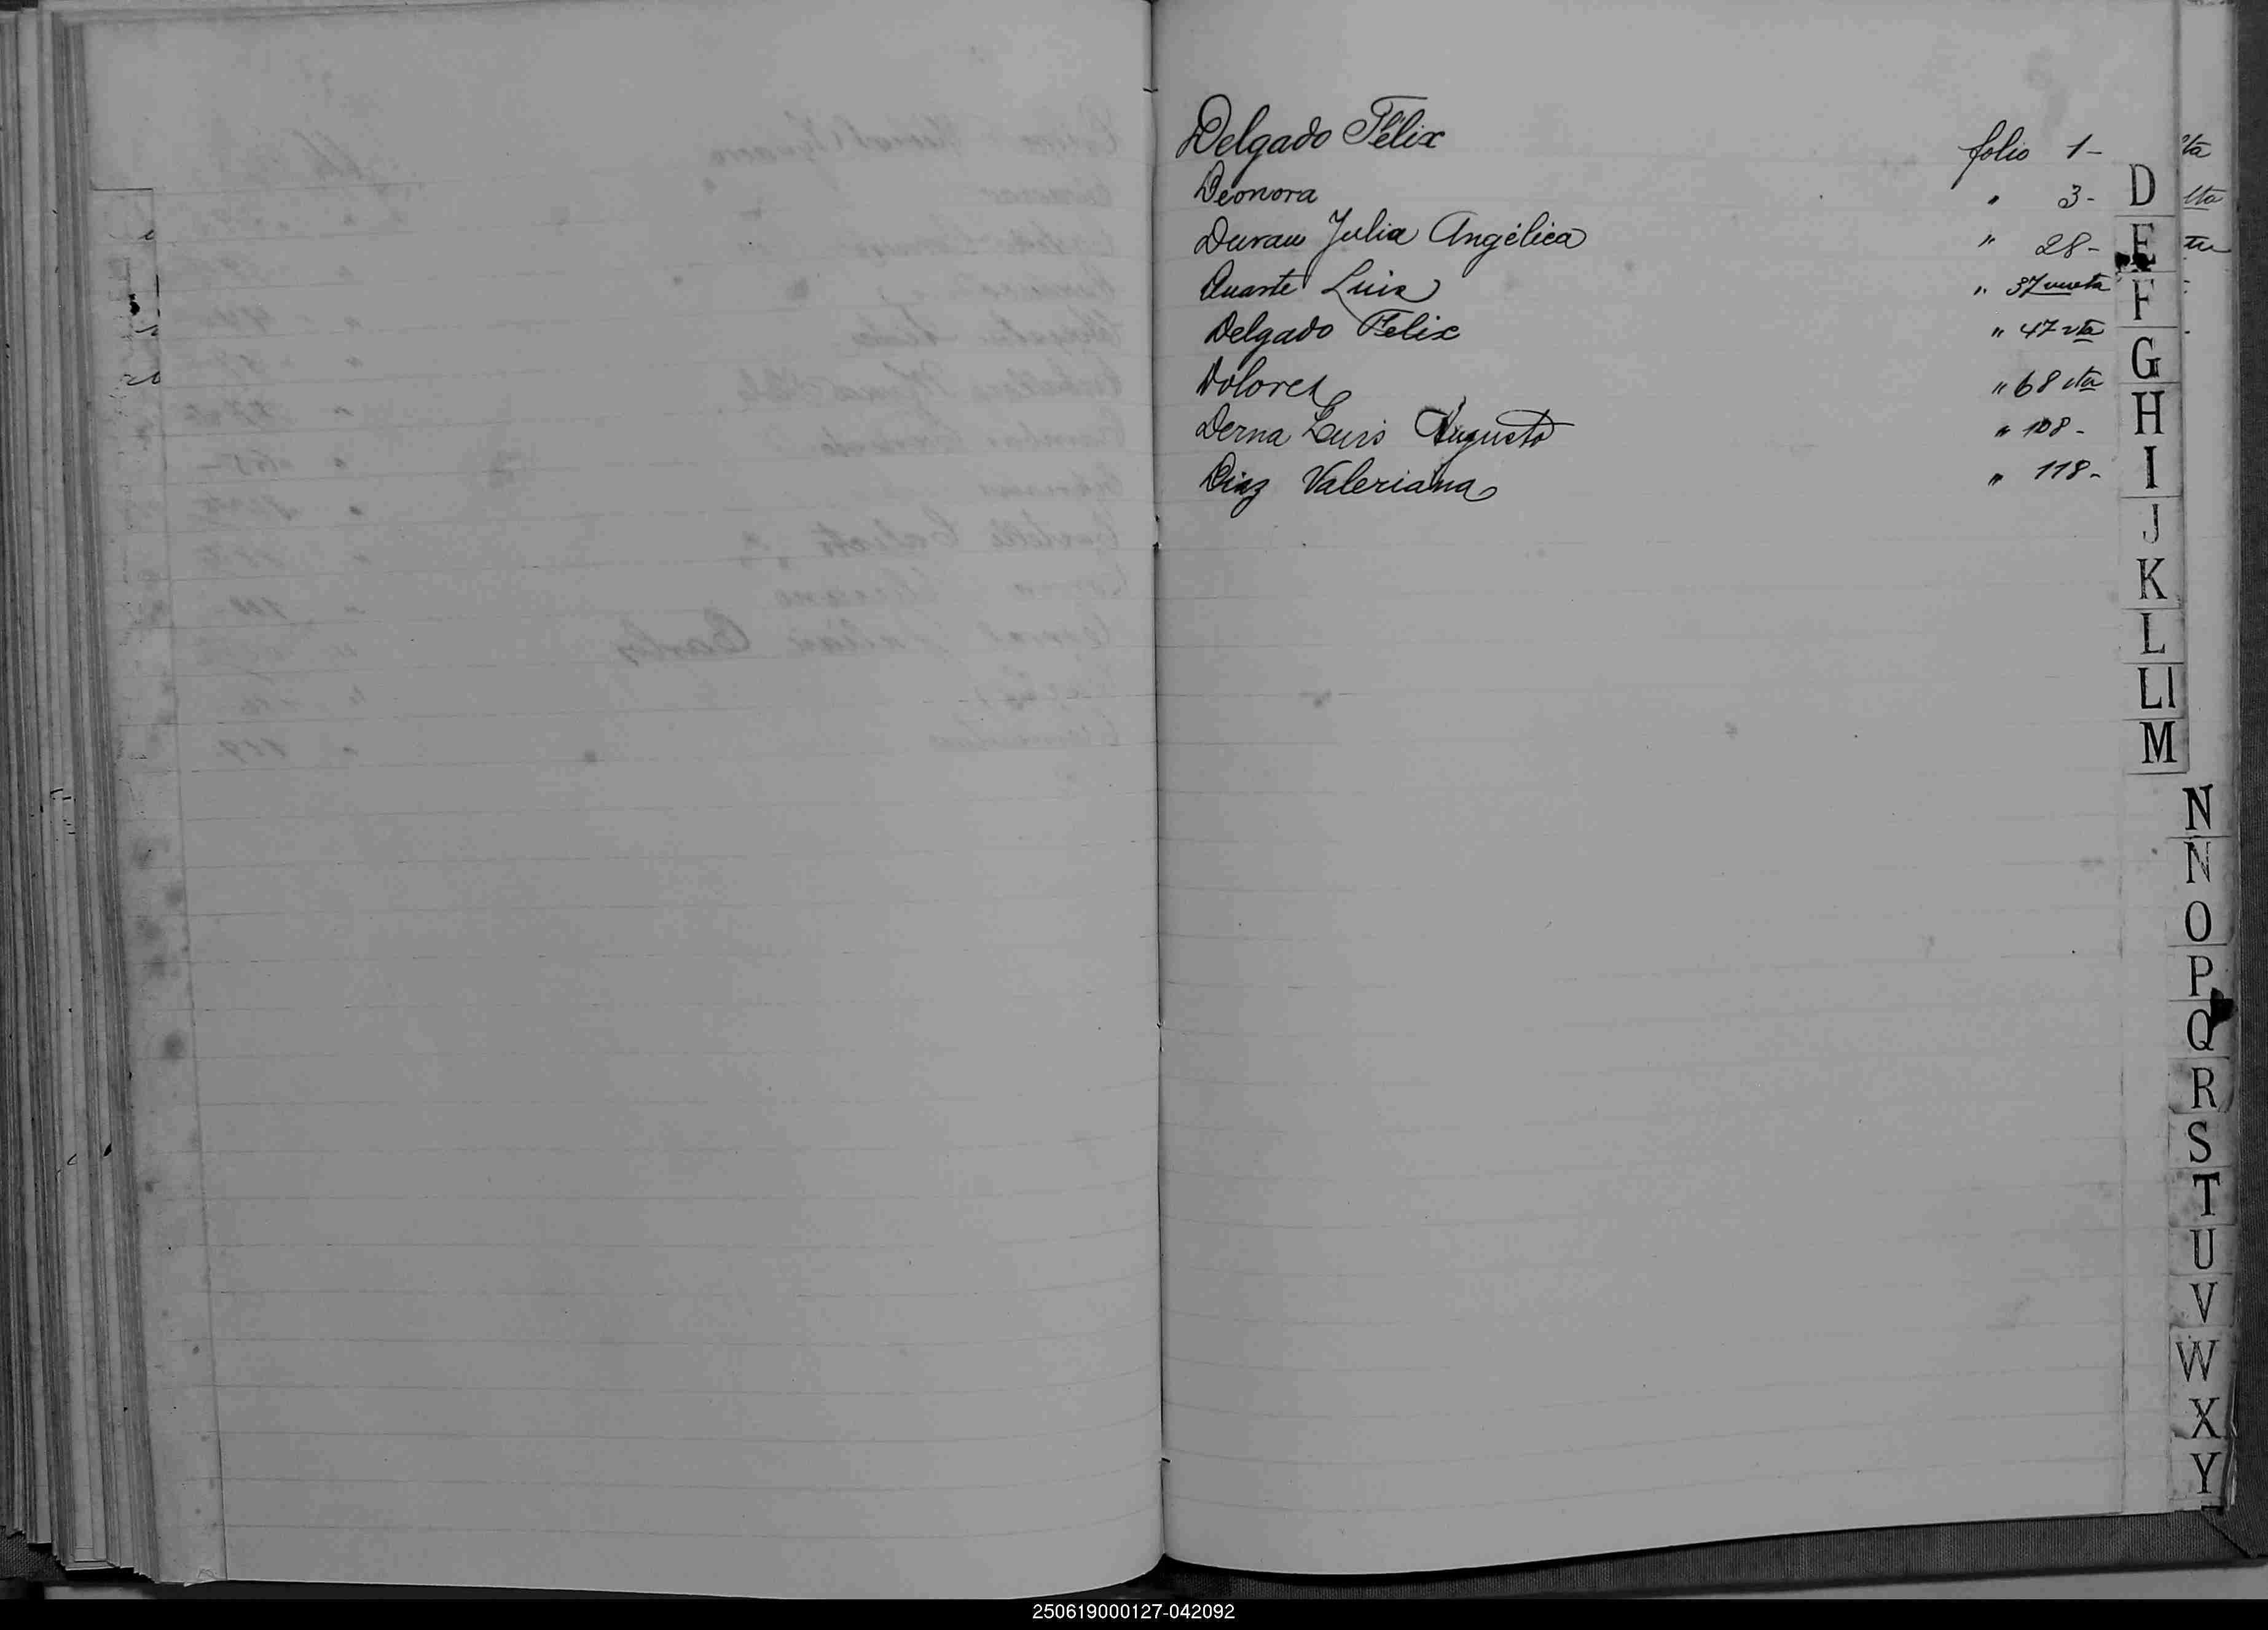 Delgado Félix folio 1-
Deonora " 3-
Duran Julia Angélica " 28-
Duarte Luis " 37 vuelta
Delgado Felix " 47 vta
Dolores " 68 vta
Derna Luis Augusto " 108-
Diaz Valeriana " 118-
D
E
F
G
H
I
J
K
L
Ll
M
N
N
O
P
Q
R
S
T
U
V
W
X
Y
250619000127-042092